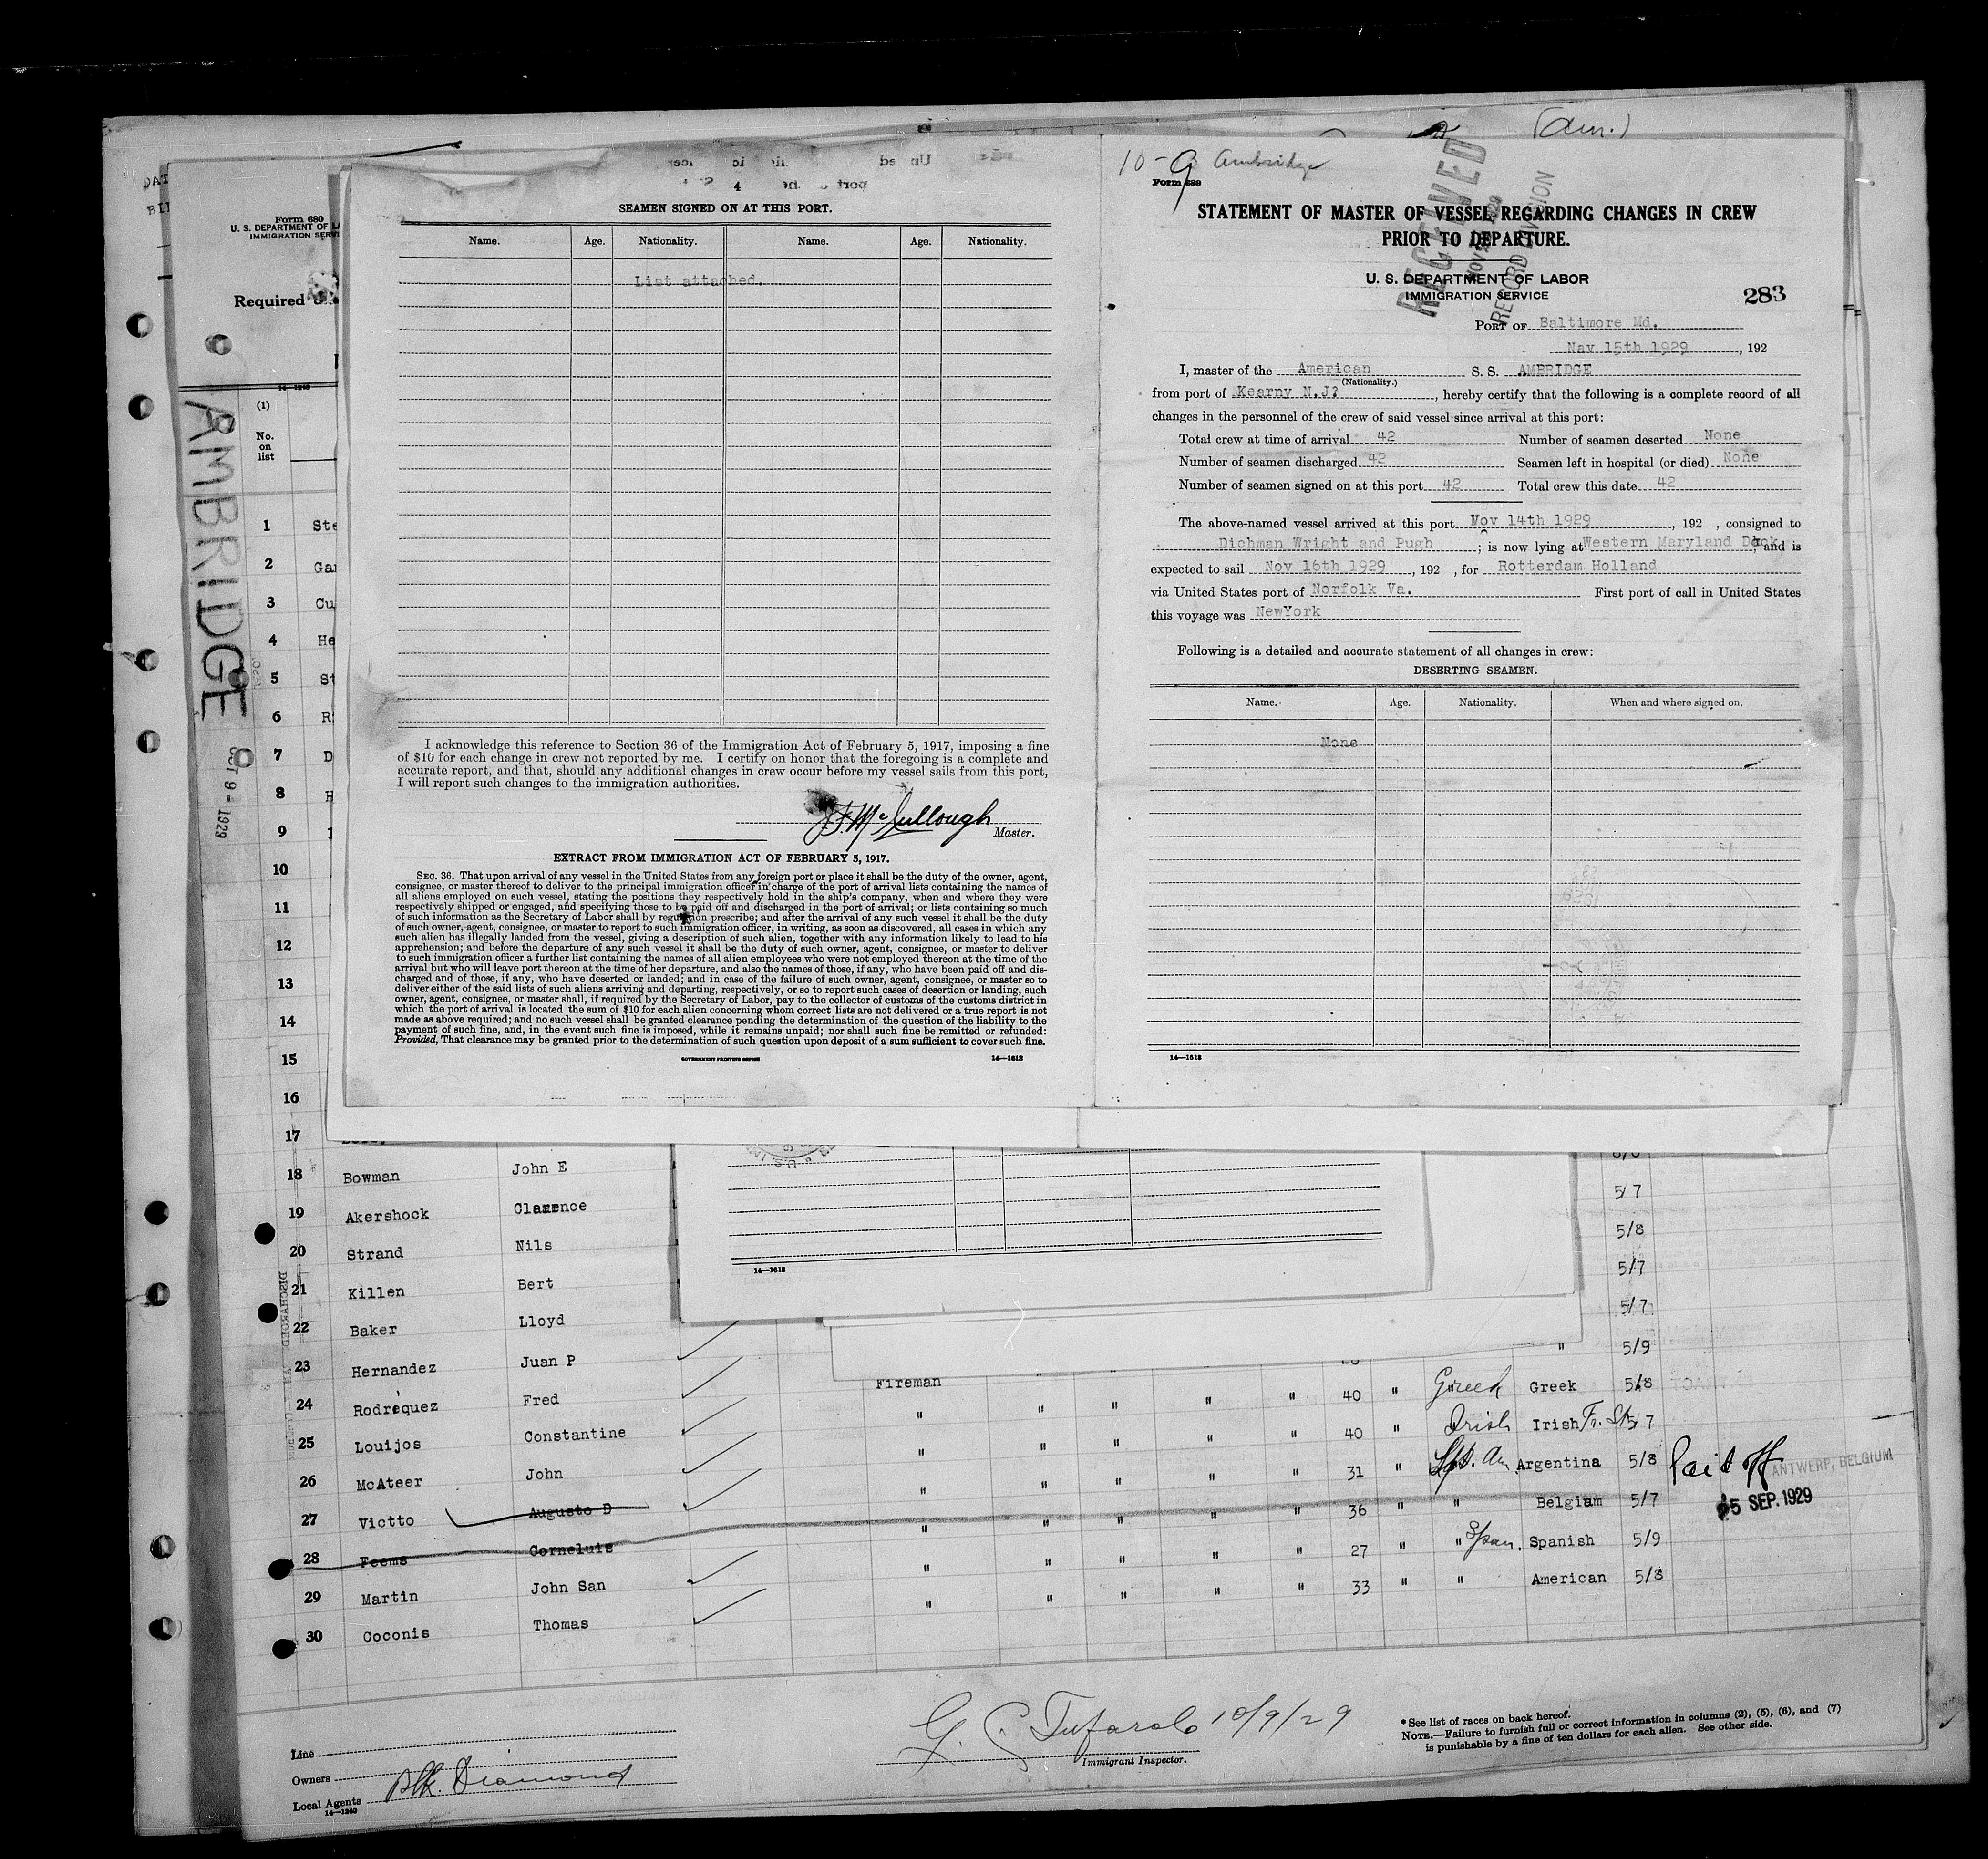 (Am.)
10-9 Ambridge
Form 689
STATEMENT OF MASTER OF VESSEL REGARDING CHANGES IN CREW
PRIOR TO DEPARTURE.
RECEIVED
NOV
RECORD DIVISION
U. S. DEPARTMENT OF LABOR
IMMIGRATION SERVICE
283
PORT OF Baltimore Md.
Nav 15th 1929, 192
I, master of the American S. S. AMBRIDGE
(Nationality.)
from port of Kearny N.J?, hereby certify that the following is a complete record of all
changes in the personnel of the crew of said vessel since arrival at this port:
Total crew at time of arrival 42 Number of seamen deserted None
Number of seamen discharged 42 Seamen left in hospital (or died) None
Number of seamen signed on at this port 42 Total crew this date 42
The above-named vessel arrived at this port Nov 14th 1929, 192 , consigned to
Dichman Wright and Pugh ; is now lying at Western Maryland Dock, and is
expected to sail Nov 16th 1929, 192 , for Rotterdam Holland
via United States port of Norfolk Va. First port of call in United States
this voyage was NewYork
Following is a detailed and accurate statement of all changes in crew:
DESERTING SEAMEN.
Name. Age. Nationality. When and where signed on.
None
14—1618
SEAMEN SIGNED ON AT THIS PORT.
Name. Age. Nationality. Name. Age. Nationality.
List attached.
I acknowledge this reference to Section 36 of the Immigration Act of February 5, 1917, imposing a fine
of $10 for each change in crew not reported by me. I certify on honor that the foregoing is a complete and
accurate report, and that, should any additional changes in crew occur before my vessel sails from this port,
I will report such changes to the immigration authorities.
J.F. McCullough
Master.
EXTRACT FROM IMMIGRATION ACT OF FEBRUARY 5, 1917.
SEC. 36. That upon arrival of any vessel in the United States from any foreign port or place it shall be the duty of the owner, agent,
consignee, or master thereof to deliver to the principal immigration officer in charge of the port of arrival lists containing the names of
all aliens employed on such vessel, stating the positions they respectively hold in the ship's company, when and where they were
respectively shipped or engaged, and specifying those to be paid off and discharged in the port of arrival; or lists containing so much
of such information as the Secretary of Labor shall by regulation prescribe; and after the arrival of any such vessel it shall be the duty
of such owner, agent, consignee, or master to report to such immigration officer, in writing, as soon as discovered, all cases in which any
such alien has illegally landed from the vessel, giving a description of such alien, together with any information likely to lead to his
apprehension; and before the departure of any such vessel it shall be the duty of such owner, agent, consignee, or master to deliver
to such immigration officer a further list containing the names of all alien employees who were not employed thereon at the time of the
arrival but who will leave port thereon at the time of her departure, and also the names of those, if any, who have been paid off and dis-
charged and of those, if any, who have deserted or landed; and in case of the failure of such owner, agent, consignee, or master so to
deliver either of the said lists of such aliens arriving and departing, respectively, or so to report such cases of desertion or landing, such
owner, agent, consignee, or master shall, if required by the Secretary of Labor, pay to the collector of customs of the customs district in
which the port of arrival is located the sum of $10 for each alien concerning whom correct lists are not delivered or a true report is not
made as above required; and no such vessel shall be granted clearance pending the determination of the question of the liability to the
payment of such fine, and, in the event such fine is imposed, while it remains unpaid; nor shall such fine be remitted or refunded:
Provided, That clearance may be granted prior to the determination of such question upon deposit of a sum sufficient to cover such fine.
GOVERNMENT PRINTING OFFICE 14—1618
Form 680
U. S. DEPARTMENT OF
IMMIGRATION
Required
14—1240
(1)
No.
on
list
AMBRIDGE
OCT 9 - 1929
1 Ste
2 Gar
3 Cu
4 He
5 St
6 Ri
7 D
8 H
9
10
11
12
13
14
15
16
17
18 Bowman John E 5/7
19 Akershock Clarence 5/8
20 Strand Nils 5/7
21 Killen Bert 5/7
22 Baker Lloyd " 5/9
23 Hernandez Juan P Fireman " 40 " Greek Greek 5/8
24 Rodrequez Fred " " " " " 40 " Irish Irish Fr. St 5/7
25 Louijos Constantine " " " " " 31 " Sp. Am. Argentina 5/8 Paid off ANTWERP, BELGIUM
26 McAteer John " " " " " 36 " " Belgium 5/7 5 SEP. 1929
27 Victto Augusto D " " " " " 27 " " Span. Spanish 5/9
28 Feems Corneluis " " " " " 33 " " American 5/8
29 Martin John San "
30 Coconis Thomas
DISCHARGED
14—1618
Line
Owners
Local Agents Blk. Diamond
14—1240
G. C. Tufarolo 10/9/29
Immigrant Inspector.
* See list of races on back hereof.
NOTE.—Failure to furnish full or correct information in columns (2), (5), (6), and (7)
is punishable by a fine of ten dollars for each alien. See other side.